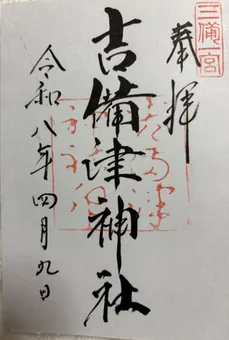 三備一宮
奉拝
吉備津神社
令和八年四月九日